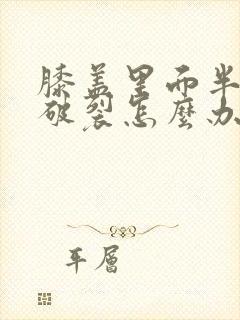 膝盖里而半
破裂怎麼办
平層